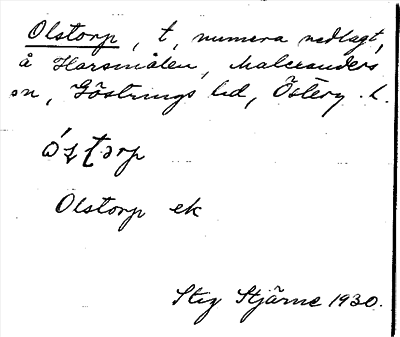 Olstorp, t, numera nedlagt,
å Harsmålen, Malexanders
sn, Göstrings hd, Österg. l.
óʂtɔrp
Olstorp ek
Stig Stjärne 1930.